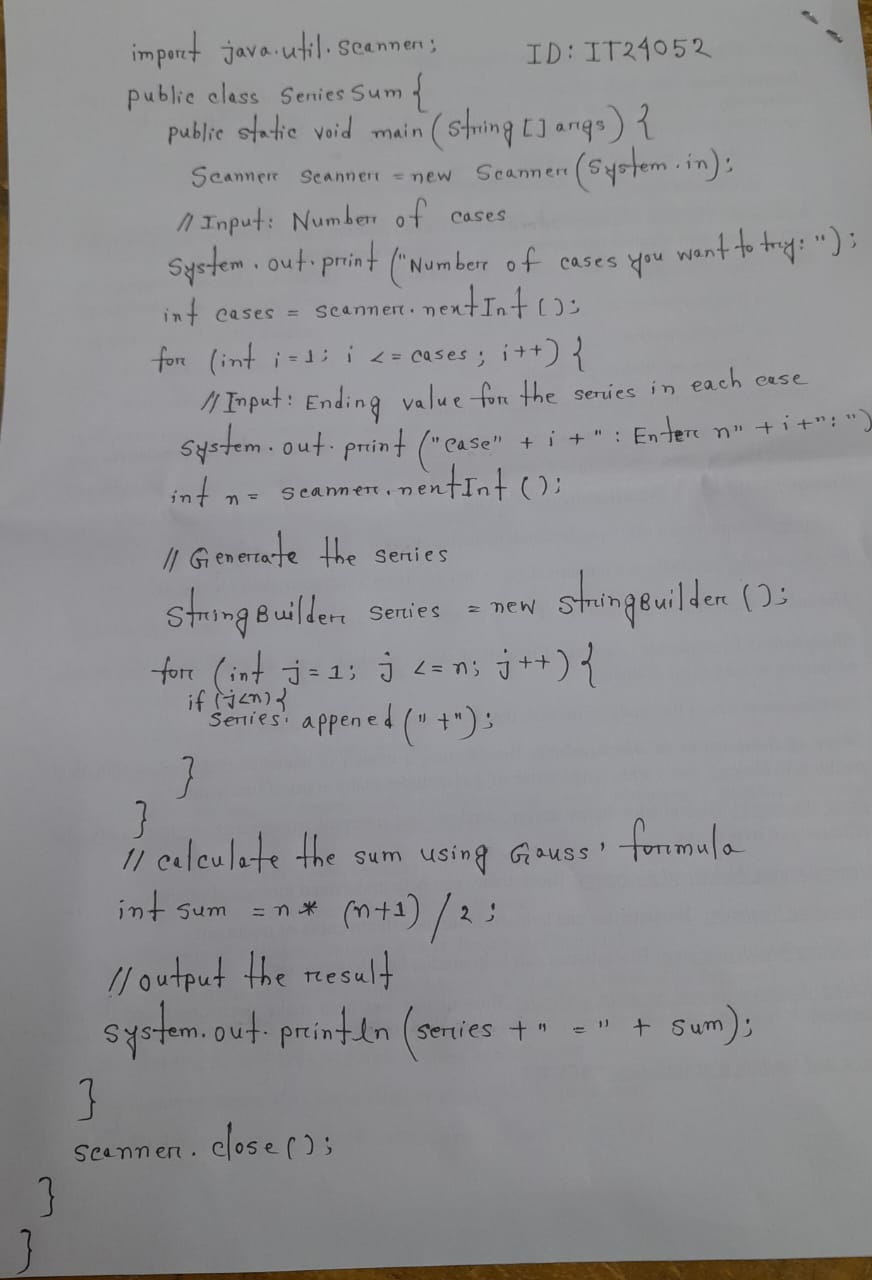 import java.util.Scanner;
ID: IT24052
public class SeriesSum {
public static void main (String [] args) {
Scanner scanner = new Scanner (System.in);
// Input: Number of cases
System.out.print ("Number of cases you want to try: ");
int cases = scanner.nextInt ();
for (int i = 1; i <= cases; i++) {
// Input: Ending value for the series in each case
System.out.print ("case" + i + " : Enter n" + i + ": ")
int n = scanner.nentInt ();
// Generate the series
StringBuilder series = new StringBuilder ();
for (int j = 1; j <= n; j++) {
if (j<n) {
series. appened (" +");
}
}
// calculate the sum using Gauss' formula
int sum = n * (n+1) / 2 ;
// output the result
System.out.println (series + " = " + sum);
}
scanner.close();
}
}